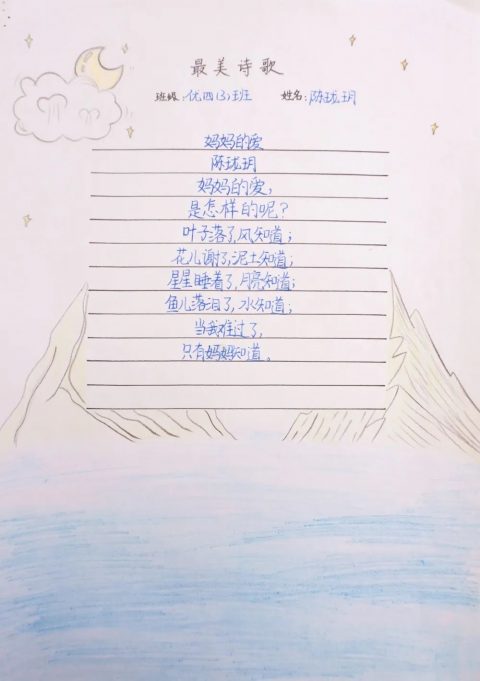 最美诗歌
班级：优四(3)班 姓名：陈珑玥
妈妈的爱
陈珑玥
妈妈的爱，
是怎样的呢？
叶子落了，风知道；
花儿谢了，泥土知道；
星星睡着了，月亮知道；
鱼儿落泪了，水知道；
当我难过了，
只有妈妈知道。